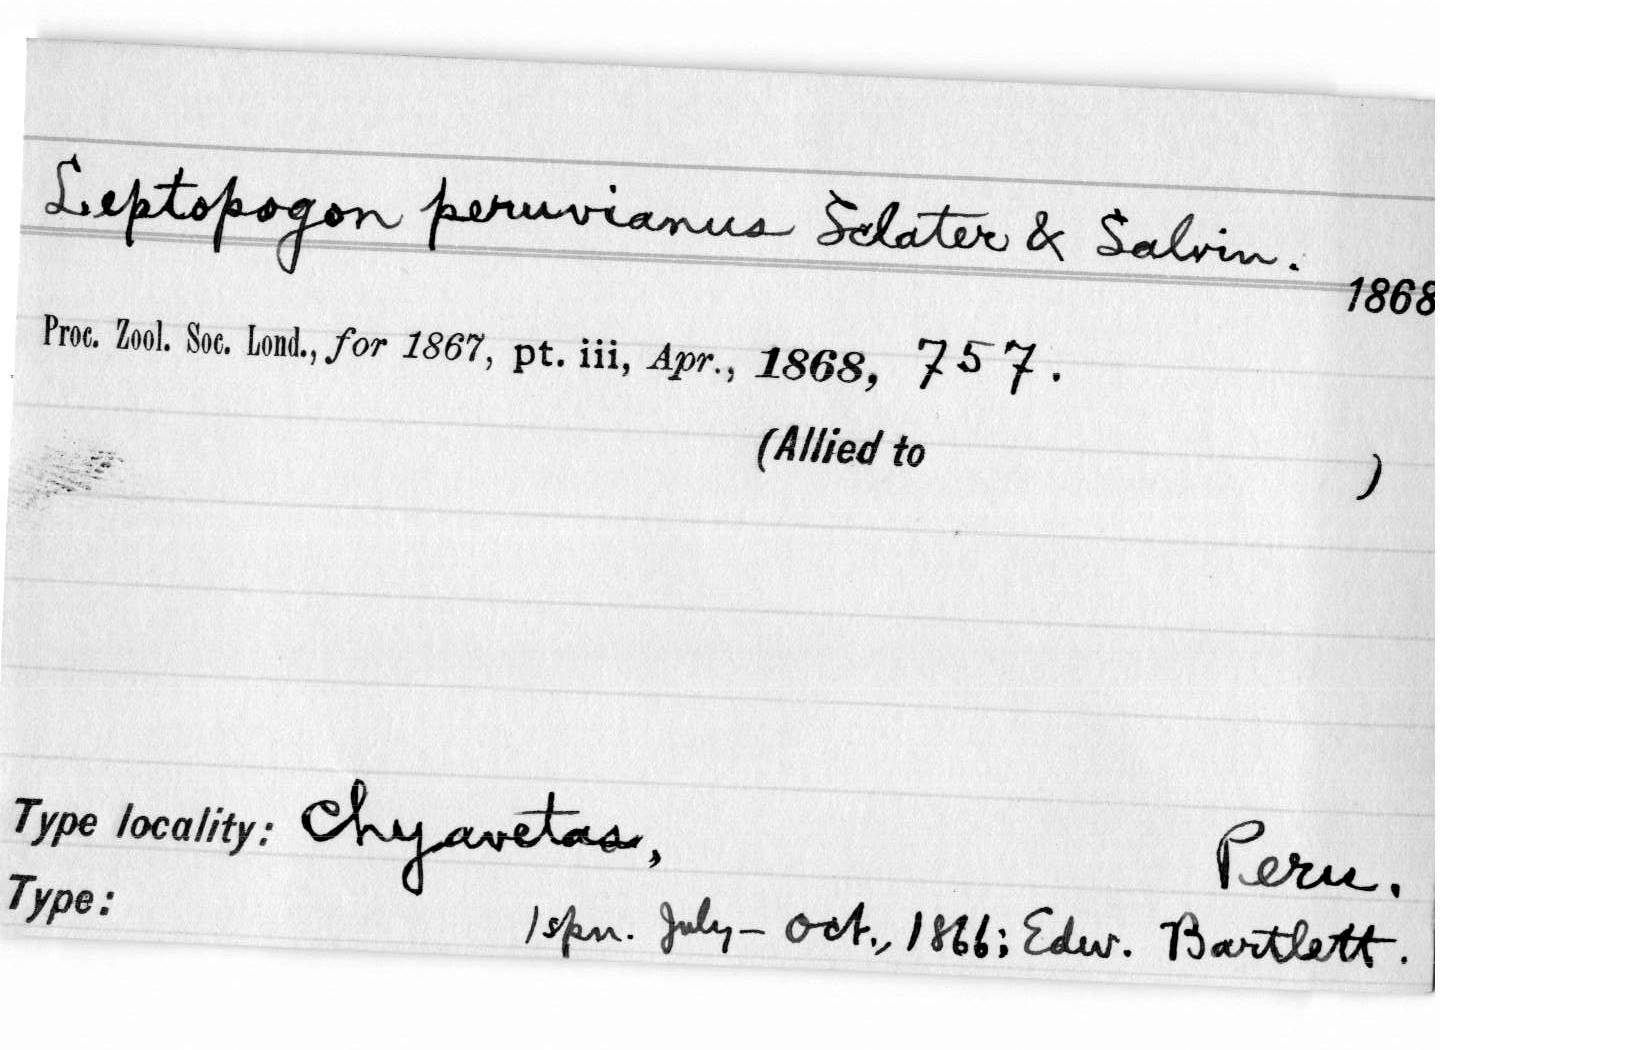 Leptopogon peruvianus Sclater & Salvin.
1868
Proc. Zool. Soc. Lond., for 1867, pt. iii, Apr., 1868, 757.
(Allied to )
Type locality: Chyavetas, Peru.
Type:
1 spn. July - Oct., 1866; Edw. Bartlett.